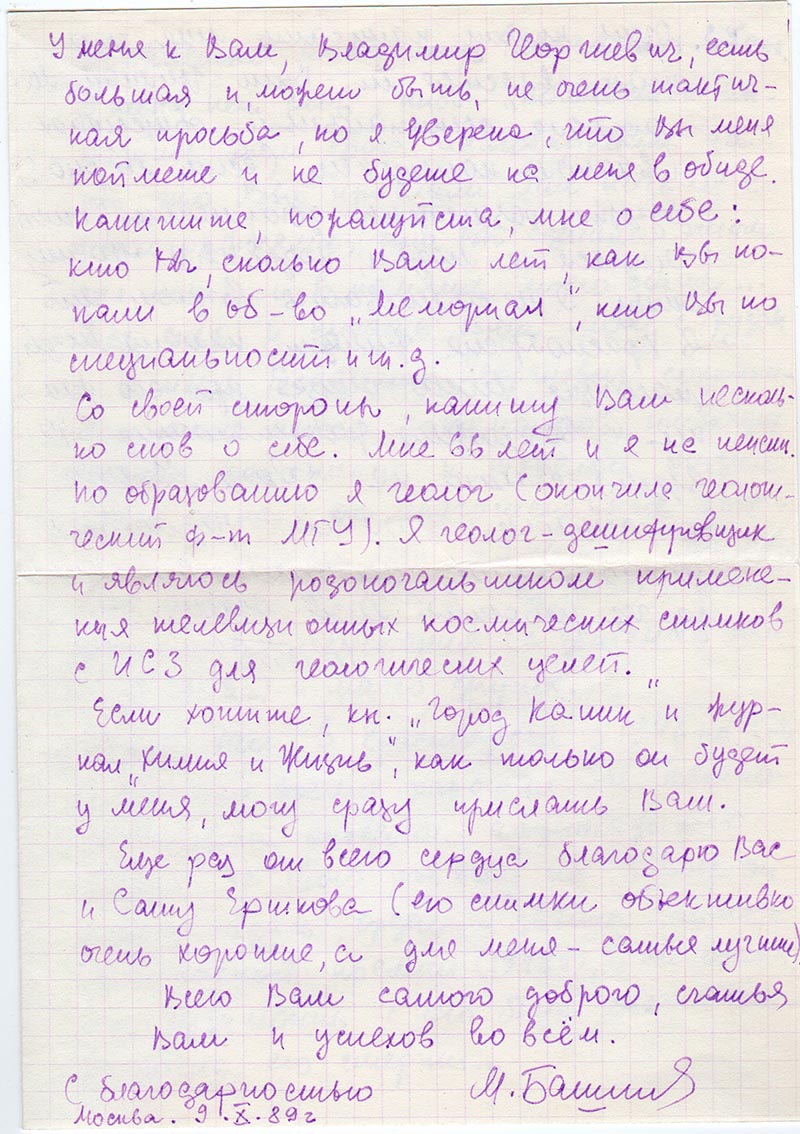 У меня к Вам, Владимир Георгиевич, есть
большая и, может быть, не очень тактич-
ная просьба, но я уверена, что Вы меня
поймете и не будете на меня в обиде.
Напишите, пожалуйста, мне о себе:
кто Вы, сколько Вам лет, как Вы по-
пали в об-во „Мемориал", кто Вы по
специальности и т.д.
Со своей стороны, напишу Вам несколь-
ко слов о себе. Мне лет и я на пенсии.
По образованию я геолог (окончила геологи-
ческий ф-т МГУ). Я геолог-дешифровщик
и являюсь родоначальником примене-
ния телевизионных космических снимков
с ИСЗ для геологических целей.
Если хотите, кн. „Город Кашин" и жур-
нал „Химия и Жизнь", как только он будет
у меня, могу сразу прислать Вам.
Еще раз от всего сердца благодарю Вас
и Сашу Ершкова (его снимки объективно
очень хорошие, а для меня - самые лучшие)
Всего Вам самого доброго, счастья
Вам и успехов во всём.
С благодарностью М.
Москва. 9.X.89г